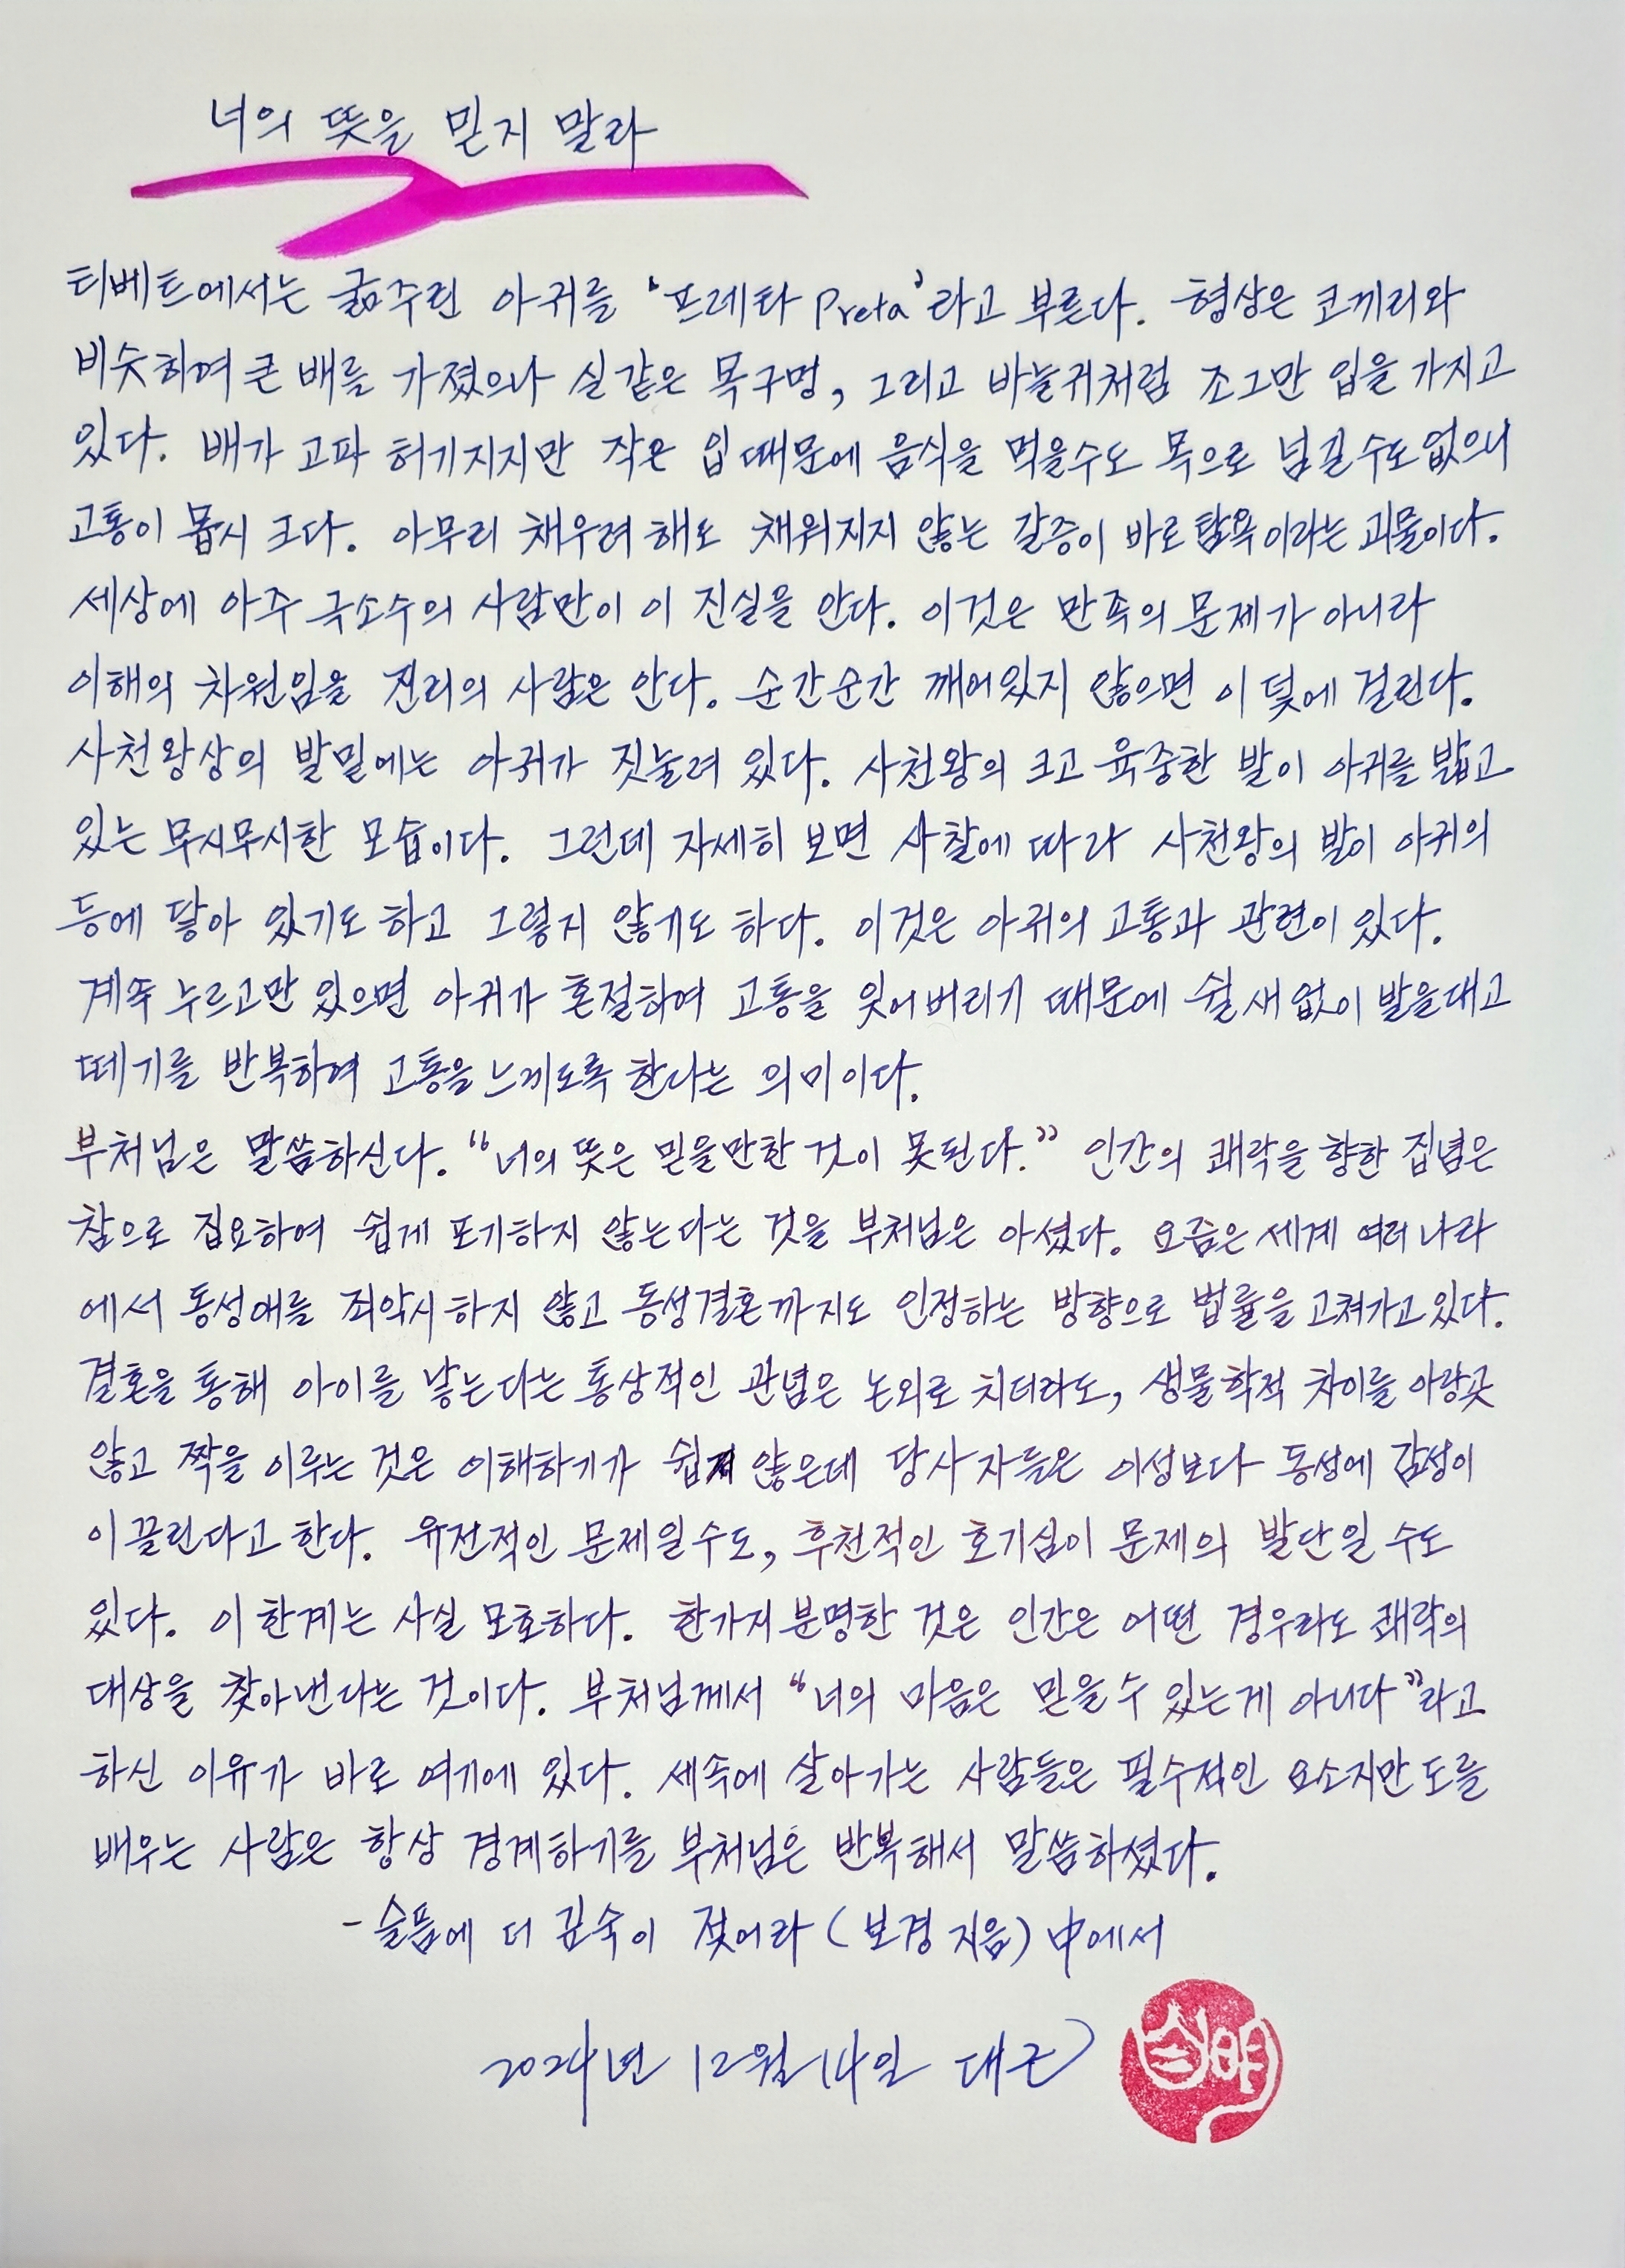 너의 뜻을 믿지 말라
티베트에서는 굶주린 아귀를 '프레타 Preta'라고 부른다. 형상은 코끼리와
비슷하여 큰 배를 가졌으나 실같은 목구멍, 그리고 바늘귀처럼 조그만 입을 가지고
있다. 배가 고파 허기지지만 작은 입 때문에 음식을 먹을수도 목으로 넘길수도 없으니
고통이 몹시 크다. 아무리 채우려 해도 채워지지 않는 갈증이 바로 탐욕이라는 괴물이다.
세상에 아주 극소수의 사람만이 이 진실을 안다. 이것은 만족의 문제가 아니라
이해의 차원임을 진리의 사람은 안다. 순간순간 깨어있지 않으면 이 덫에 걸린다.
사천왕상의 발밑에는 아귀가 짓눌려 있다. 사천왕의 크고 육중한 발이 아귀를 밟고
있는 무시무시한 모습이다. 그런데 자세히 보면 사찰에 따라 사천왕의 발이 아귀의
등에 닿아 있기도 하고 그렇지 않기도 하다. 이것은 아귀의 고통과 관련이 있다.
계속 누르고만 있으면 아귀가 혼절하여 고통을 잊어버리기 때문에 쉴새없이 발을대고
떼기를 반복하여 고통을 느끼도록 한다는 의미이다.
부처님은 말씀하신다. "너의 뜻은 믿을만한 것이 못된다." 인간의 쾌락을 향한 집념은
참으로 집요하여 쉽게 포기하지 않는다는 것을 부처님은 아셨다. 요즘은 세계 여러 나라
에서 동성애를 죄악시 하지 않고 동성결혼까지도 인정하는 방향으로 법률을 고쳐가고 있다.
결혼을 통해 아이를 낳는다는 통상적인 관념은 논외로 치더라도, 생물학적 차이를 아랑곳
않고 짝을 이루는 것은 이해하기가 쉽지 않은데 당사자들은 이성보다 동성에 감성이
이끌린다고 한다. 유전적인 문제일수도, 후천적인 호기심이 문제의 발단일 수도
있다. 이 한계는 사실 모호하다. 한가지 분명한 것은 인간은 어떤 경우라도 쾌락의
대상을 찾아낸다는 것이다. 부처님께서 "너의 마음은 믿을 수 있는게 아니다"라고
하신 이유가 바로 여기에 있다. 세속에 살아가는 사람들은 필수적인 요소지만 도를
배우는 사람은 항상 경계하기를 부처님은 반복해서 말씀하셨다.
- 슬픔에 더 깊숙이 젖어라 (보경 지음) 中에서
2024년 12월 14일 대근